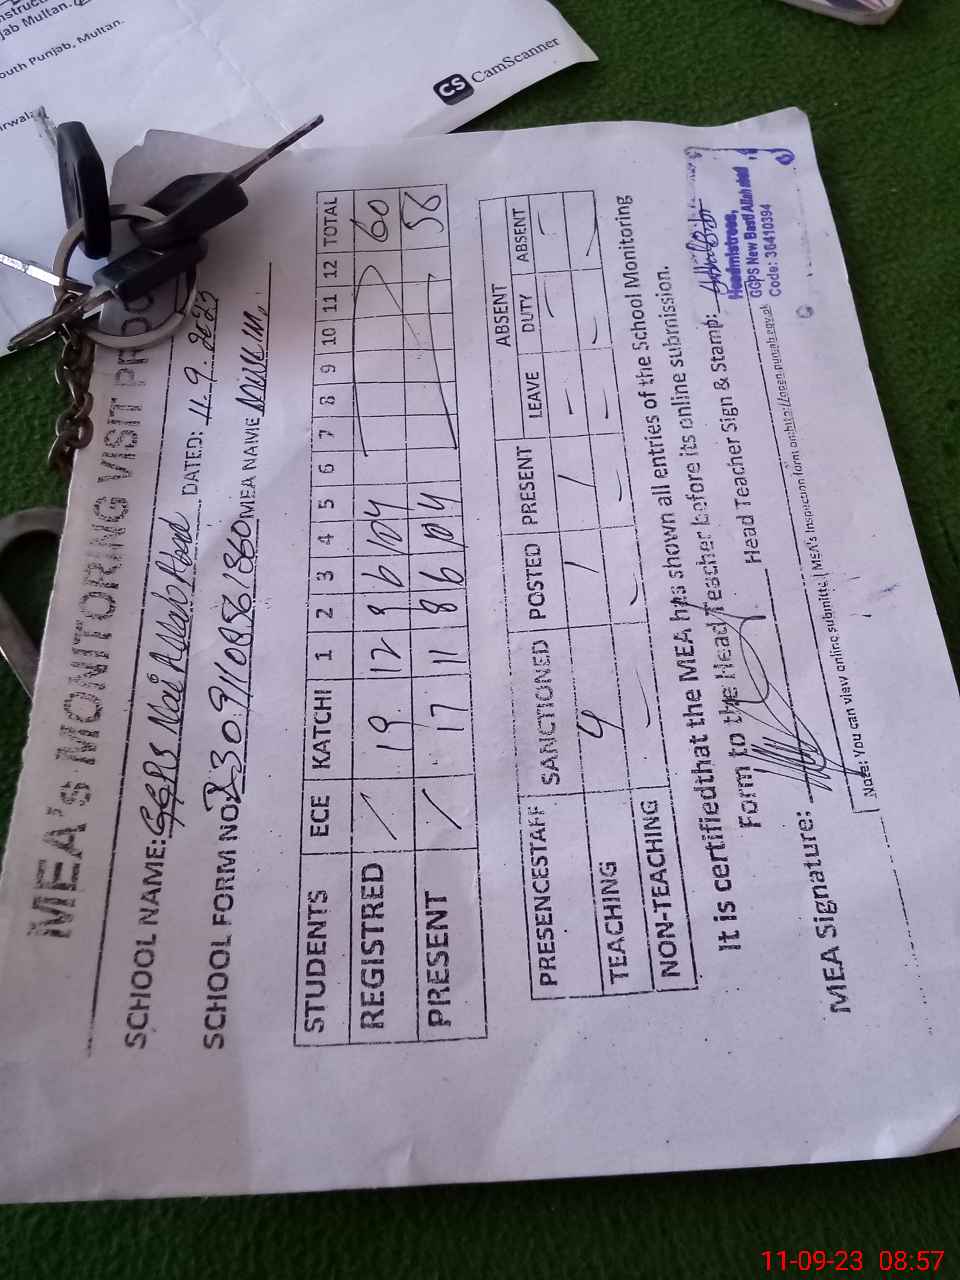 jab Multan.
outh Punjab, Multan.
CS CamScanner
MEA's MONITORING VISIT
SCHOOL NAME: GGPS Allah Abad DATED: 11.9.2023
SCHOOL FORM NO. MEA NAME
STUDENTS ECE KATCHI 1 2 3 4 5 6 7 8 9 10 11 12 TOTAL
REGISTRED / 19 12 9 6 10 4 60
PRESENT / 17 11 8 6 10 4 56
ABSENT
PRESENCESTAFF SANCTIONED POSTED PRESENT LEAVE DUTY ABSENT
TEACHING 4 1 1 - - -
NON-TEACHING - - - - - -
It is certifiedthat the MEA has shown all entries of the School Monitoring
Form to the Head Teacher before its online submission.
MEA Signature: Head Teacher Sign & Stamp:
Headmistress,
GGPS New Basti Allah abad
Code: 36410394
Note: You can view online submitted MEA's Inspection form on:http://open.punjab.gov.pk
11-09-23 08:57